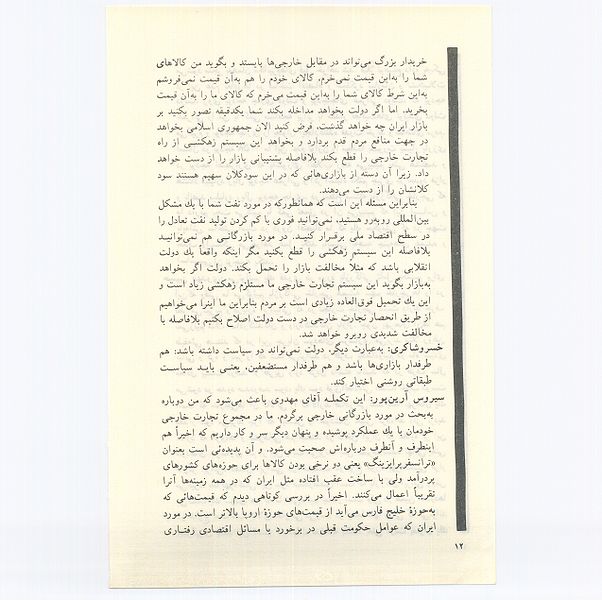 خریدار بزرگ می‌تواند در مقابل خارجی‌ها بایستد و بگوید من کالاهای
شما را به‌این قیمت نمی‌خرم، کالای خودم را هم به‌آن قیمت نمی‌فروشم
به‌این شرط کالای شما را به‌این قیمت می‌خرم که کالای ما را به‌آن قیمت
بخرید. اما اگر دولت بخواهد مداخله بکند شما یکدقیقه تصور بکنید بر
بازار ایران چه خواهد گذشت، فرض کنید الان جمهوری اسلامی بخواهد
در جهت منافع مردم قدم بردارد و بخواهد این سیستم زهکشی از راه
تجارت خارجی را قطع بکند بلافاصله پشتیبانی بازار را از دست خواهد
داد. زیرا آن دسته از بازاری‌هائی که در این سودکلان سهیم هستند سود
کلانشان را از دست می‌دهند.
بنابراین مسئله این است که همانطورکه در مورد نفت شما با یك مشکل
بین‌المللی روبه‌رو هستید، نمی‌توانید فوری با کم کردن تولید نفت تعادل را
در سطح اقتصاد ملی برقرار کنید. در مورد بازرگانی هم نمی‌توانید
بلافاصله این سیستم زهکشی را قطع بکنید مگر اینکه واقعاً یك دولت
انقلابی باشد که مثلاً مخالفت بازار را تحمل بکند. دولت اگر بخواهد
به‌بازار بگوید این سیستم تجارت خارجی ما مستلزم زهکشی زیاد است و
این یك تحمیل فوق‌العاده زیادی است بر مردم بنابراین ما اینرا می‌خواهیم
از طریق انحصار تجارت خارجی در دست دولت اصلاح بکنیم بلافاصله با
مخالفت شدیدی روبرو خواهد شد.
خسروشاکری: به‌عبارت دیگر، دولت نمی‌تواند دو سیاست داشته باشد: هم
طرفدار بازاری‌ها باشد و هم طرفدار مستضعفین، یعنی باید سیاست
طبقاتی روشنی اختیار کند.
سیروس آرین‌پور: این تکمله آقای مهدوی باعث می‌شود که من دوباره
به‌بحث در مورد بازرگانی خارجی برگردم. ما در مجموع تجارت خارجی
خودمان با یك عملکرد پوشیده و پنهان دیگر سر و کار داریم که اخیراً هم
اینطرف و آنطرف درباره‌اش صحبت می‌شود، و آن پدیده‌ئی است بعنوان
«ترانسفرپرایزینگ» یعنی دو نرخی بودن کالاها برای حوزه‌های کشورهای
پردرآمد ولی با ساخت عقب افتاده مثل ایران که در همه زمینه‌ها آنرا
تقریباً اعمال می‌کنند. اخیراً در بررسی کوتاهی دیدم که قیمت‌هائی که
به‌حوزهٔ خلیج فارس می‌آید از قیمت‌های حوزهٔ اروپا بالاتر است. در مورد
ایران که عوامل حکومت قبلی در برخورد با مسائل اقتصادی رفتاری
۱۲